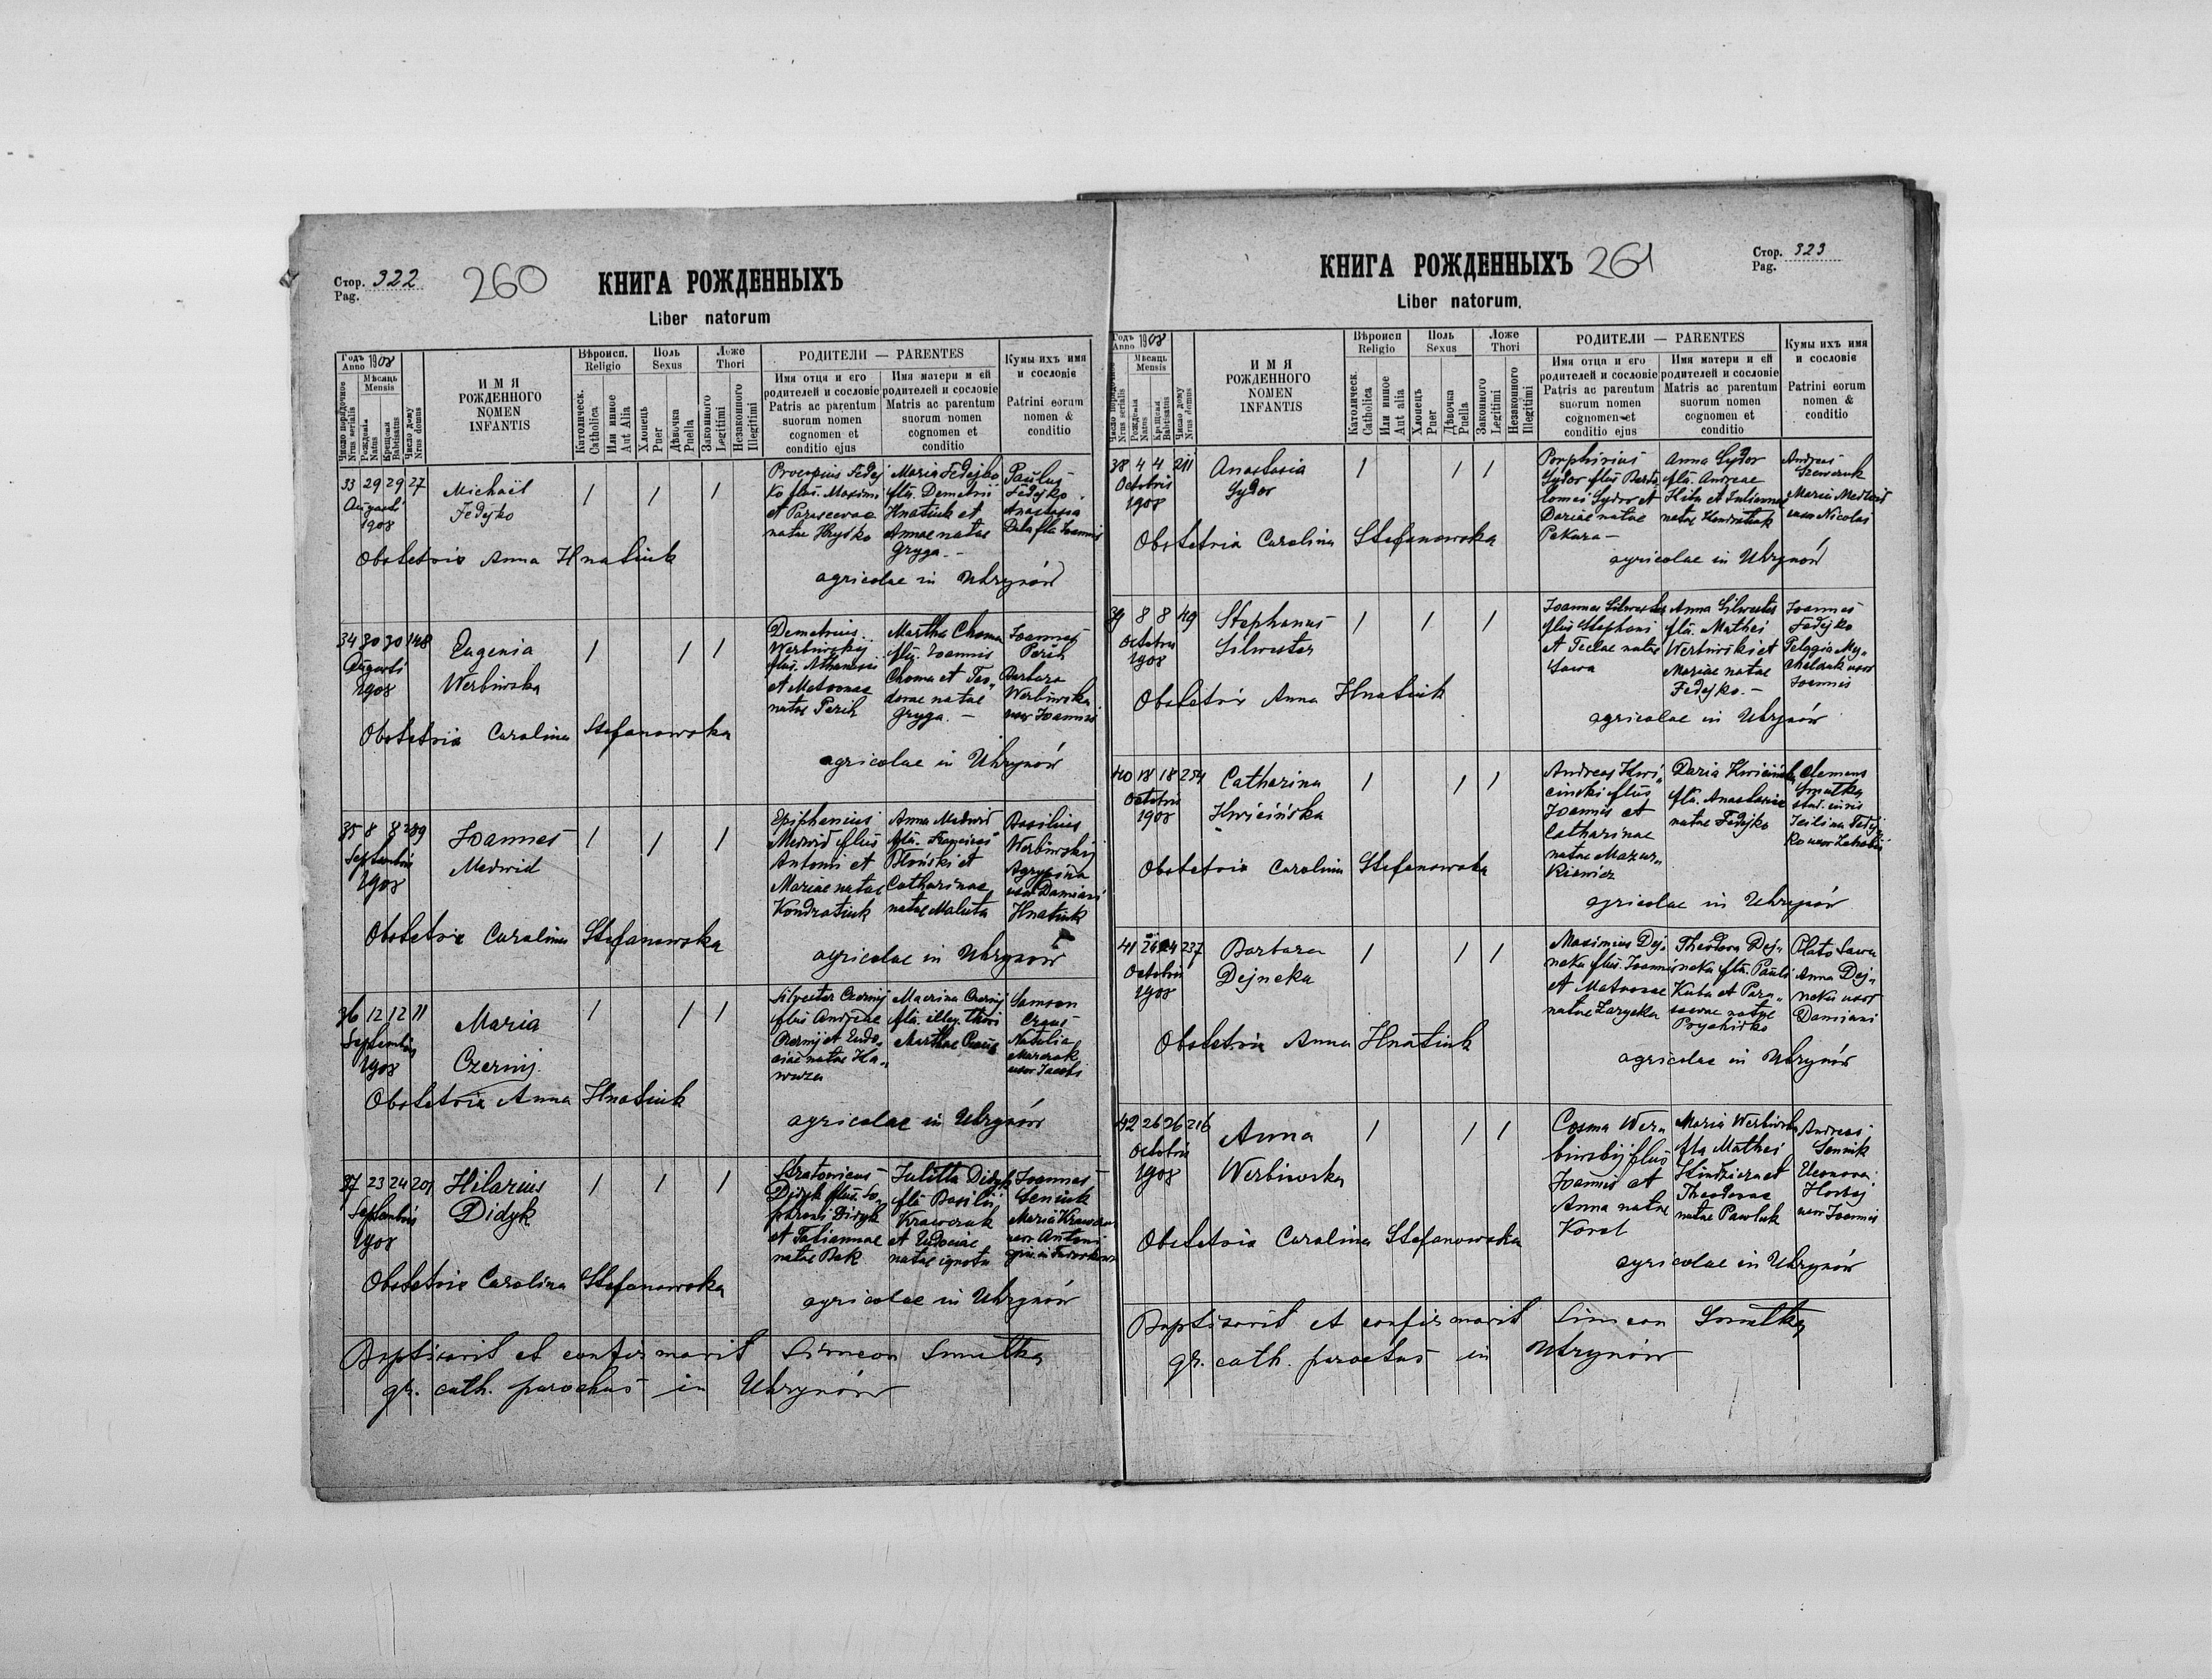 Стор. 322
Pag.
260
КНИГА РОЖДЕННЫХЪ
Liber natorum
Годъ 1908
Anno
Мѣсяць
Mensis
Число порядочное
Nrus serialis
Рожденія
Natus
Крещенія
Babtisatus
Число дому
Nrus domus
ИМЯ
РОЖДЕННОГО
NOMEN
INFANTIS
Вѣроисп.
Religio
Католическ.
Catholica
Или инное
Aut Alia
Полъ
Sexus
Хлопець
Puer
Дѣвочка
Puella
Ложе
Thori
Законного
Legitimi
Незаконного
Illegitimi
РОДИТЕЛИ — PARENTES
Имя отца и его
родителей и сословіе
Patris ac parentum
suorum nomen
cognomen et
conditio ejus
Имя матери и ей
родителей и сословіе
Matris ac parentum
suorum nomen
cognomen et
conditio
Кумы ихъ имя
и сословіе
Patrini eorum
nomen &
conditio
33 29 29 27
Augusti
1908
Michaël
Fedejko
/ / /
Procopius Fedej
ko flius. Maximi
et Parascevae
natae Hrysko
Maria Fedejko
flia. Demetrii
Hnatiuk et
Annae natae
Gryga. -
Paulus
Fedejko
Anastasia
flia Joannis
Obstetrix Anna Hnatiuk
agricolae in Uhrynów
34 30 30 148
Augusti
1908
Eugenia
Werbiwska
/ / /
Demetrius
Werbiwskij
flius. Athanasii
et Matronae
natae Perih
Martha Choma
flia. Joannis
Choma et Teo„
dorae natae
Gryga. -
Joannes
Perih
Barbara
Werbiwska
uxor Joannis
Obstetrix Carolina Stefanowska
agricolae in Uhrynów
35 8 8 289
Septembris
1908
Joannes
Medwid
/ / /
Epiphanius
Medwid flius
Antonii et
Mariae natae
Kondratiuk
Anna Medwid
flia. Francisci
Błoński et
Catharinae
natae Maluta
Basilius
Werbiwskij
Agrypina
uxor Damiani
Hnatiuk
Obstetrix Carolina Stefanowska
agricolae in Uhrynów
36 12 12 11
Septembris
1908
Maria
Czernij
/ / /
Silvester Czernij
flius Andreae
Czernij et Eudo„
ciae natae Ha„
Macrina Czernij
flia. illeg. thori
Marthae
Samson
Natalia
uxor Jacobi
Obstetrix Anna Hnatiuk
agricolae in Uhrynów
37 23 24 201
Septembris
1908
Hilarius
Didyk
/ / /
Stratonicus
Didyk flius. So„
phroni Didyk
et Tatiannae
natae Bak
Julitta Didyk
flia Basilii
Krawczuk
et Eudociae
natae ignota
Joannes
Seniuk
Maria
uxor Antoni
Obstetrix Carolina Stefanowska
agricolae in Uhrynów
Baptisavit et confirmavit Simeon Smulka
gr. cath. parochus in Uhrynów
261
Стор. 323
Pag.
КНИГА РОЖДЕННЫХЪ
Liber natorum.
Годъ 1908
Anno
Мѣсяць
Mensis
Число порядочное
Nrus serialis
Рожденія
Natus
Крещенія
Babtisatus
Число дому
Nrus domus
ИМЯ
РОЖДЕННОГО
NOMEN
INFANTIS
Вѣроисп
Religio
Католическ.
Catholica
Или инное
Aut alia
Полъ
Sexus
Хлопець
Puer
Дѣвочка
Puella
Ложе
Thori
Законного
Legitimi
Незаконного
Illegitimi
РОДИТЕЛИ — PARENTES
Имя отца и его
родителей и сословіе
Patris ac parentum
suorum nomen
cognomen et
conditio ejus
Имя матери и ей
родителей и сословіе
Matris ac parentum
suorum nomen
cognomen et
conditio
Кумы ихъ имя
и сословіе
Patrini eorum
nomen &
conditio
38 4 4 211
Octobris
1908
Anastasia
Sydor
/ / /
Porphirius
Sydor flius Barto„
lomei Sydor et
Dariae natae
Pekara -
Anna Sydor
flia. Andreae
et Julianna
natae Kondratiuk
Andreas
Szewczuk
Maria Medwid
uxor Nicolai
Obstetrix Carolina Stefanowska
agricolae in Uhrynów
39 8 8 49
Octobris
1908
Stephanus
Silwester
/ / /
Joannes Silwester
flius Stephani
et Teclae natae
Sawa
Anna Silwester
flia. Mathei
Werbiwski et
Mariae natae
Fedejko. -
Joannes
Fedejko
Pelagia My„
uxor
Joannis
Obstetrix Anna Hnatiuk
agricolae in Uhrynów
40 18 18 254
Octobris
1908
Catharina
Kwicińska
/ / /
Andreas Kwi„
cinski flius
Joannis et
Catharinae
natae Mazur„
kiewicz
Daria Kwicińska
flia. Anastasiae
natae Fedejko
Clemens
Smulka
stud. iuris
Fedej„
ko uxor
Obstetrix Carolina Stefanowska
agricolae in Uhrynów
41 24 24 237
Octobris
1908
Barbara
Dejneka
/ / /
Maximus Dej„
neka flius. Joannis
et Matronae
natae Zarycka
Theodora Dej„
neka flia. Pauli
Kuba et Para„
scevae natae
Prychidko
Plato Sawa
Anna Dej„
neka uxor
Damiani
Obstetrix Anna Hnatiuk
agricolae in Uhrynów
42 26 26 216
Octobris
1908
Anna
Werbiwska
/ / /
Cosma Wer„
biwskij flius
Joannis et
Anna natae
Korol
Maria Werbiwska
flia Mathei
et
Theodorae
natae Pawluk
Andreas
Senuik
Eleonora
uxor Joannis
Obstetrix Carolina Stefanowska
agricolae in Uhrynów
Baptisavit et confirmavit Simeon Smulka
gr. cath. parochus in Uhrynów